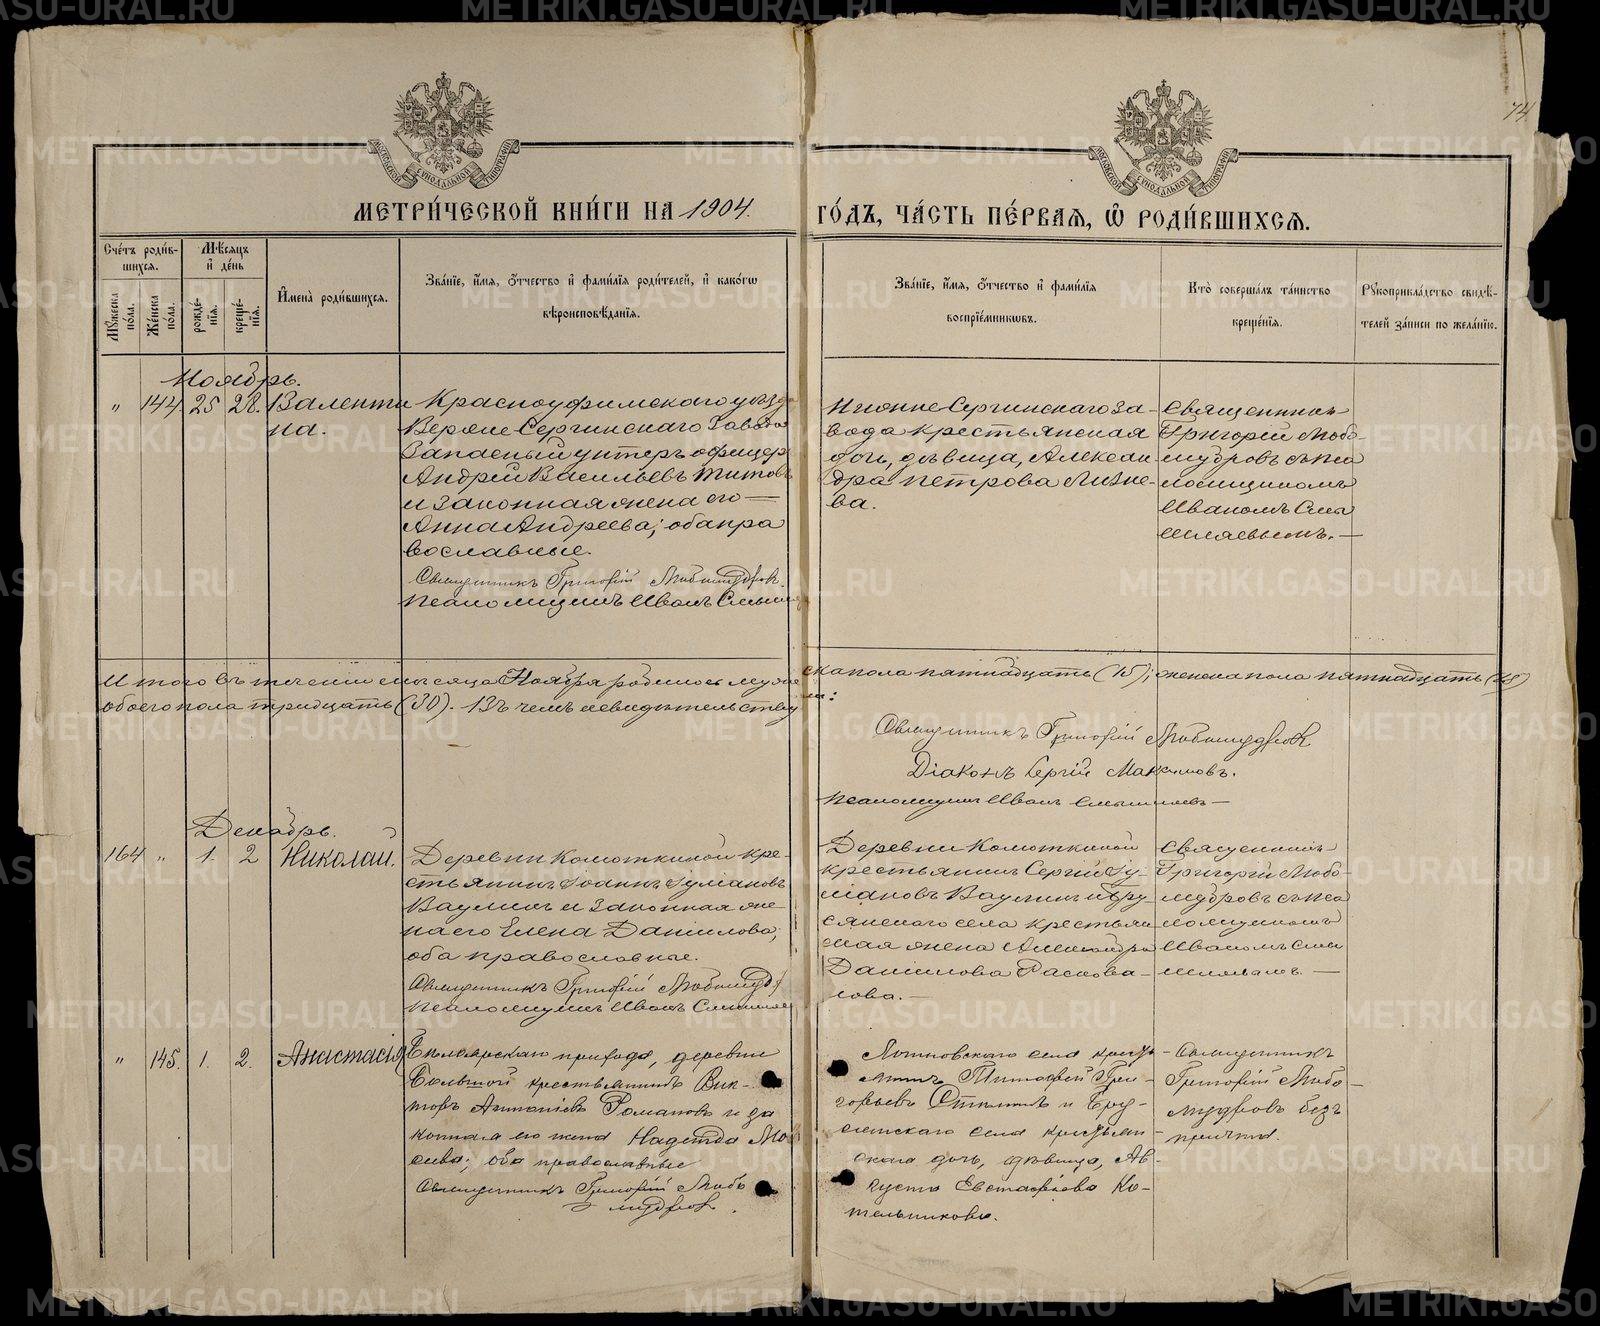 74
МЕТРИ́ЧЕСКОЙ КНИ́ГИ НА 1904.
ГО́ДЪ, ЧА́СТЬ ПЕ́РВАЯ, Ѡ РОДИ́ВШИХСЯ.
Сче́тъ роди́в-
шихся.
Мѣ́сяцъ
и҆ де́нь
Мꙋ́жеска по́ла.
Же́нска по́ла.
рожде́-
нїѧ.
креще́-
нїѧ.
И҆мена̀ роди́вшихся.
Зва́нїе, и҆́мѧ, ѻ҆́тчество и҆ фами́лїѧ роди́телей, и҆ како́гѡ
вѣроисповѣ́данїѧ.
Зва́нїе, и҆́мѧ, ѻ҆́тчество и҆ фами́лїѧ
воспрїе́мникѡвъ.
Кто̀ соверша́лъ та́инство
креще́нїѧ.
Рꙋкоприкла́дство свидѣ́-
телей за́писи по жела́нїю.
Ноябрь.
" 144. 25 28. Валенти
на.
Красноуфимскаго уѣзда
Верхне Сергинскаго Завода
Запасный унтеръ офицеръ
Андрей Васильевъ Титовъ
и законная жена его —
Анна Андреева; оба пра
вославные.
Священникъ Григорій Любомудровъ.
Псаломщикъ Иванъ
Нижне Сергинскаго за-
вода крестьянская
дочь, дѣвица, Алексан
дра Петрова
ва.
Священникъ
Григорій Любо-
мудровъ съ пса
ломщикомъ
Иваномъ Смы
шляевымъ. —
Итого въ теченіи мѣсяца Ноября родилось муже
ска пола пятнадцать (15); женска пола пятнадцать (15)
обоего пола тридцать (30). Въ чемъ и свидѣтельству
емъ:
Священникъ Григорій Любомудровъ
Діаконъ Сергій Максимовъ.
Псаломщикъ Иванъ Смышляевъ —
Декабрь.
164 " 1. 2 Николай.
Деревни Комоткиной кре-
стьянинъ Іоаннъ
Ваулинъ и законная же-
на его Елена Даніилова;
оба православные.
Священникъ Григорій Любомудр
Псаломщикъ Иванъ Смышляе
Деревни Комоткиной
крестьянинъ Сергій
Ваулинъ и Бру-
сянскаго села крестьян
ская жена Александра
Даніилова
лова. —
Священникъ
Григорій Любо-
мудровъ съ пса
ломщикомъ
Иваномъ Смы
шляевымъ. —
" 145. 1. 2. Анастасія
прихода, деревни
Большой крестьянинъ Вик-
торъ Романовъ и за
конная его жена Надежда Мои
сеева; оба православные
Священникъ Григорій Любо
мудровъ.
Логиновскаго села кресть-
янинъ Тимофей Гри-
горьевъ и Бру-
сянскаго села крестьян-
ская дочь, дѣвица, Ав-
густа Евстафіева Ко-
тельникова.
Священникъ
Григорій Любо-
мудровъ безъ
причта.
METRIKI.GASO-URAL.RU